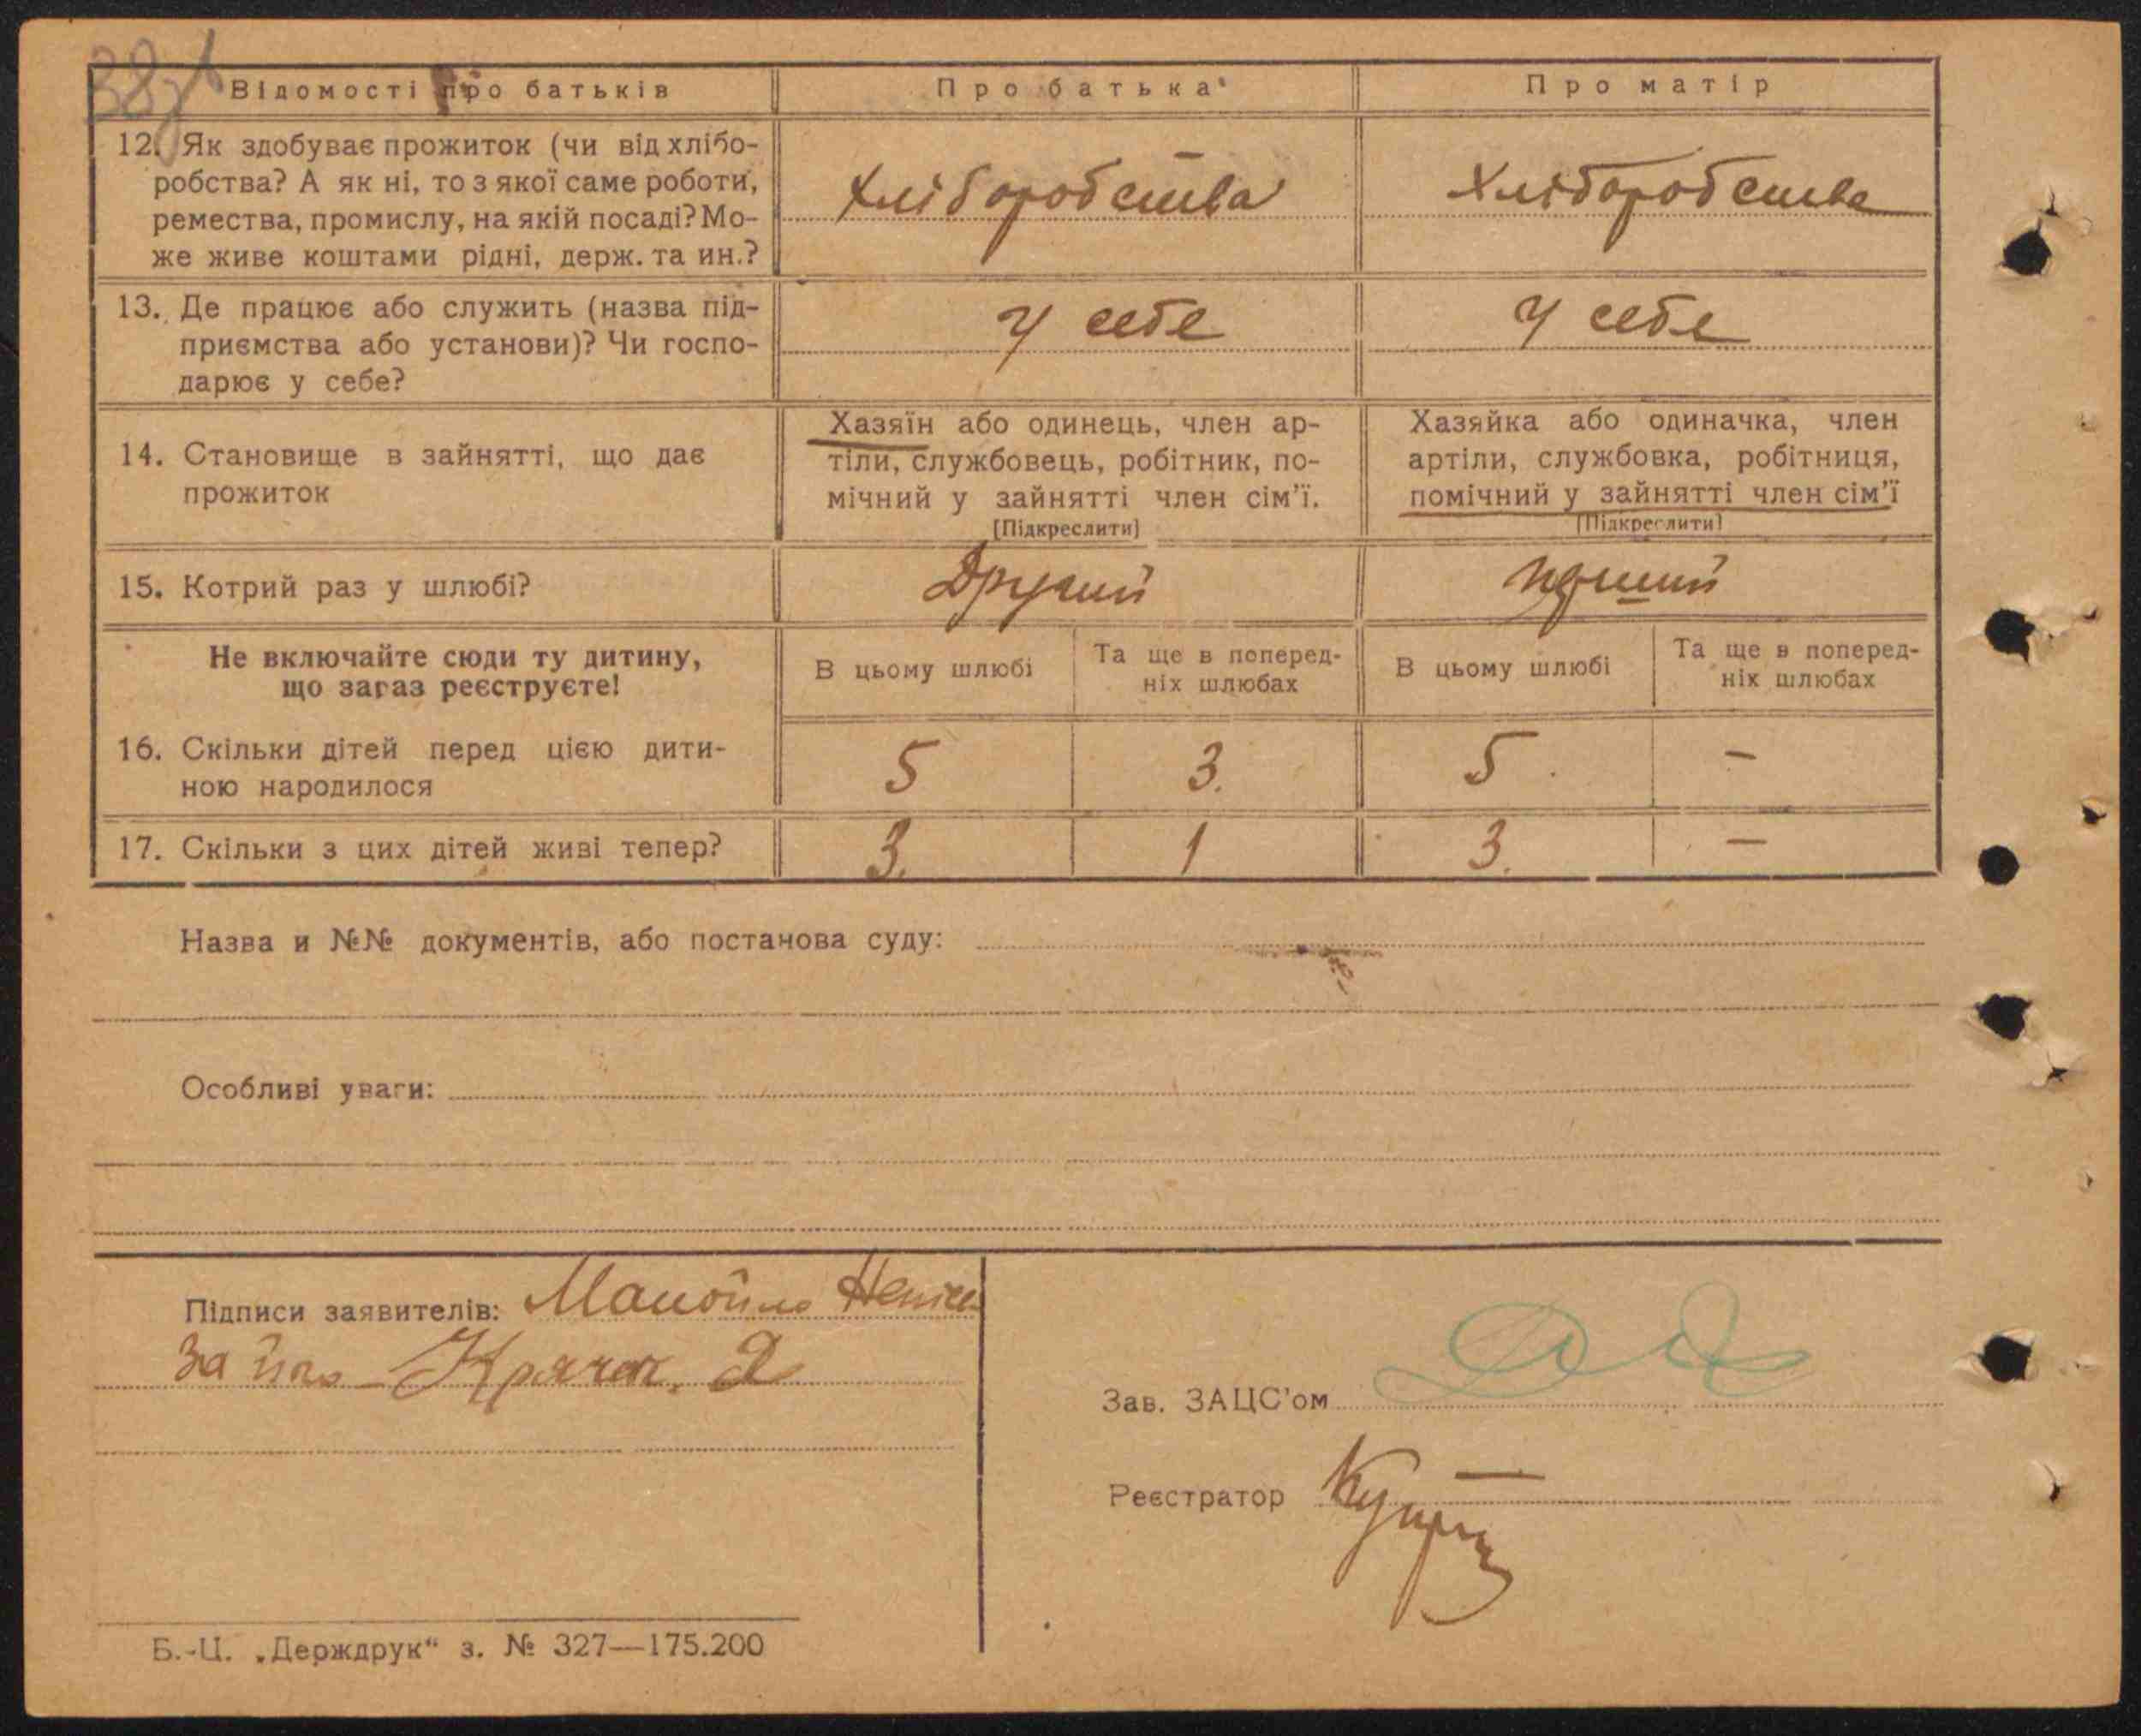 Відомості про батьків
Про батька
Про матір
12. Як здобуває прожиток (чи від хлібо-
робства? А як ні, то з якої саме роботи,
ремества, промислу, на якій посаді? Мо-
же живе коштами рідні, держ. та ин.?
Хліборобства
Хліборобства
13. Де працює або служить (назва під-
приємства або установи)? Чи госпо-
дарює у себе?
У себе
У себе
14. Становище в зайнятті, що дає
прожиток
Хазяїн або одинець, член ар-
тіли, службовець, робітник, по-
мічний у зайнятті член сім'ї.
[Підкреслити]
Хазяйка або одиначка, член
артіли, службовка, робітниця,
помічний у зайнятті член сім'ї
[Підкреслити]
15. Котрий раз у шлюбі?
Другий
перший
Не включайте сюди ту дитину,
що зараз реєструєте!
В цьому шлюбі
Та ще в поперед-
ніх шлюбах
В цьому шлюбі
Та ще в поперед-
ніх шлюбах
16. Скільки дітей перед цією дити-
ною народилося
5
3.
5
—
17. Скільки з цих дітей живі тепер?
3.
1
3.
—
Назва и №№ документів, або постанова суду:
Особливі уваги:
Підписи заявителів: Манойло
За його
Зав. ЗАЦС'ом
Реєстратор
Б.-Ц. „Держдрук“ з. № 327—175.200